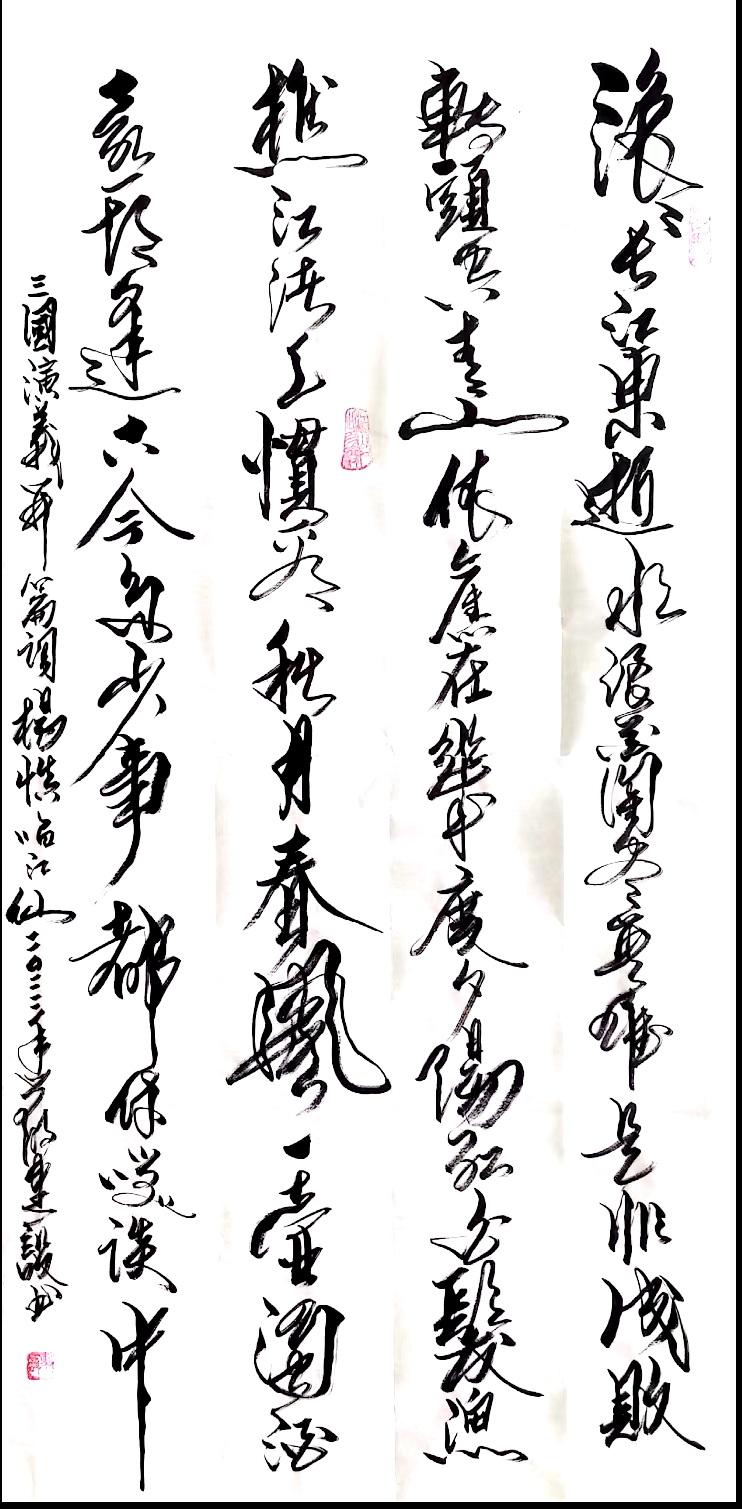 滚々长江東逝水浪花淘尽英雄是非成敗
轉頭空青山依舊在幾度夕陽紅白髮漁
樵江渚上慣看秋月春風一壺濁酒
喜相逢古今多少事都付笑談中
三國演義开篇詞楊慎临江仙 年 建設书